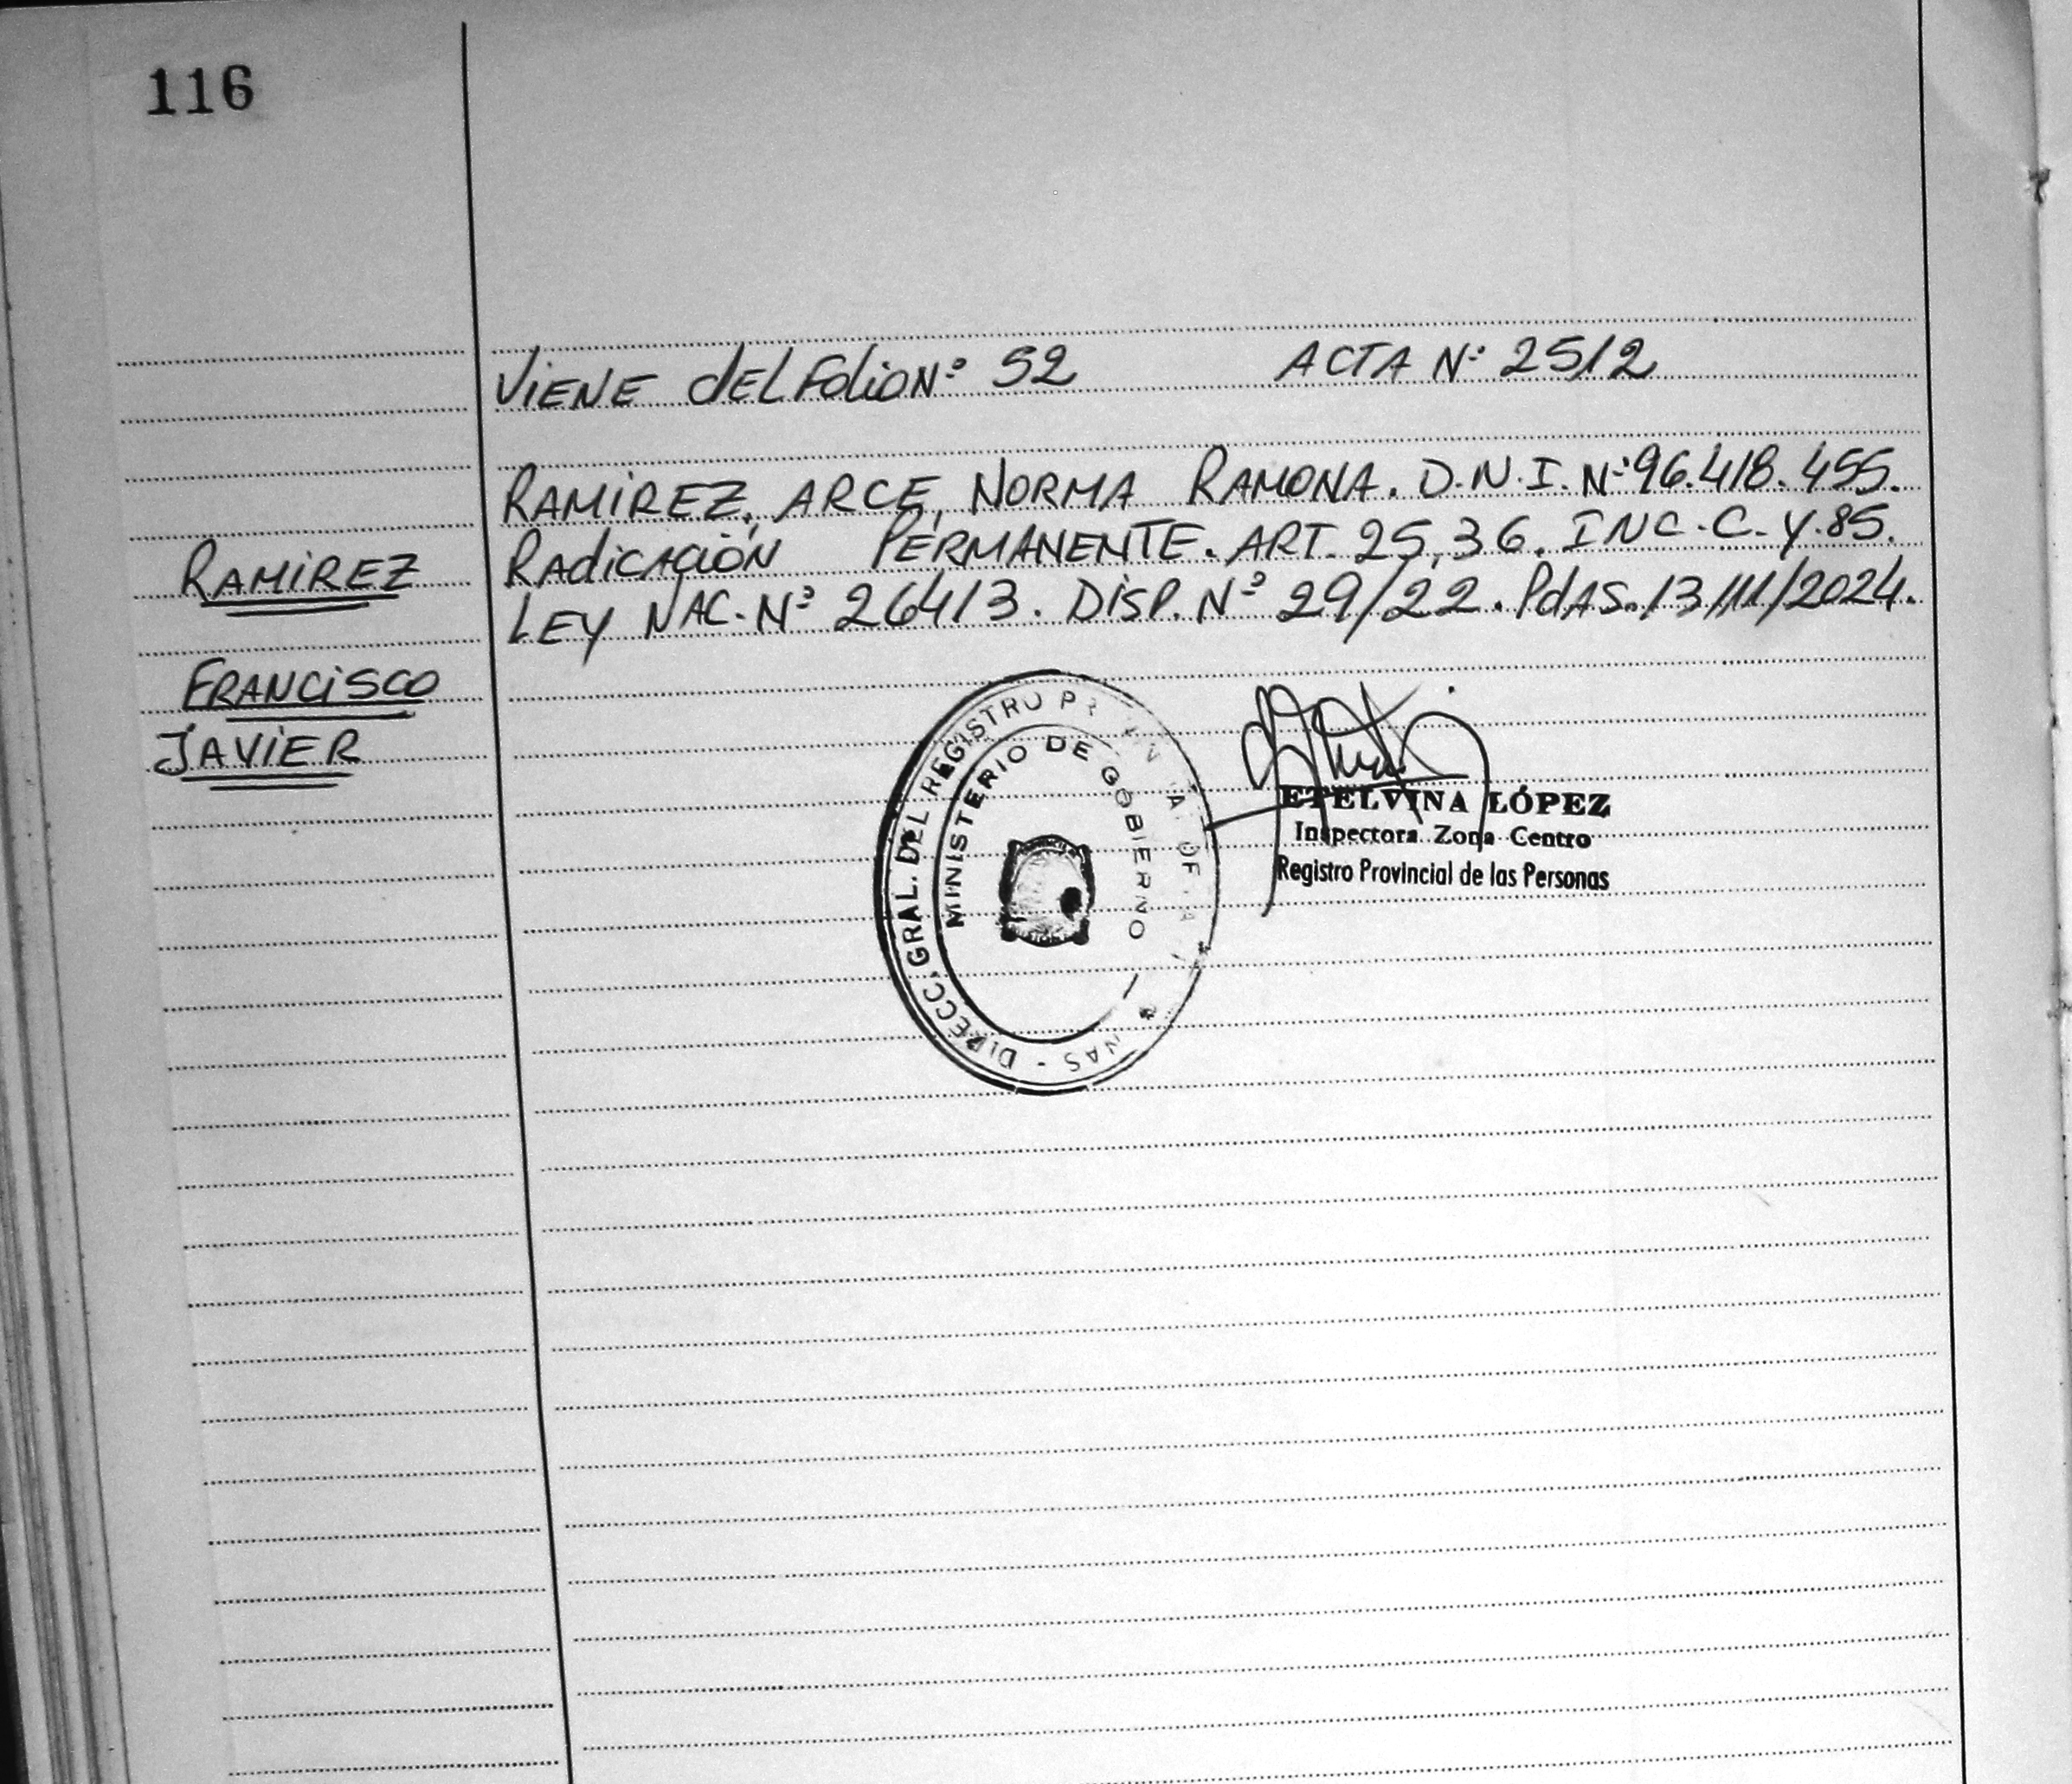 116
VIENE dEL FoLioNº 52 ACTA Nº 2512
RAMIREZ, ARCE, NORMA RAMONA. D.N.I. Nº 96.418.455.
RAdicACiÓN PERMANENTE. ART. 25, 36. INC. C. Y. 85.
LEY NAC. Nº 26413. DISP. Nº 29/22. PdAS. 13/11/2024.
RAMIREZ
FRANCISCO
JAVIER
DIRECC. GRAL. DEL REGISTRO
MINISTERIO DE GOBIERNO
ETELVINA LÓPEZ
Inspectora Zona Centro
Registro Provincial de las Personas